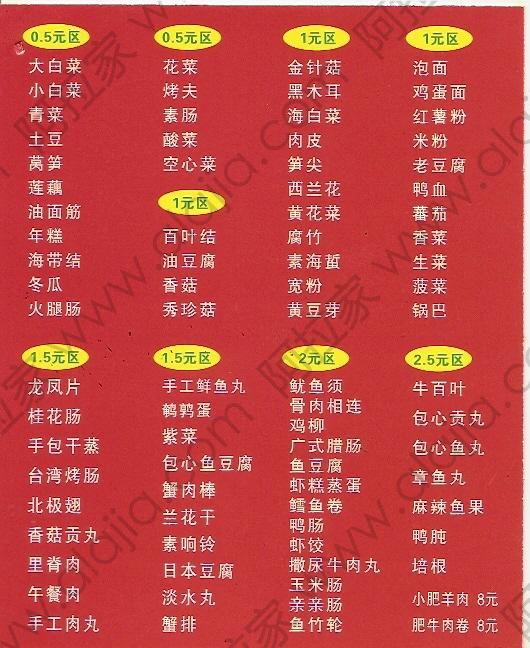 0.5元区
大白菜
小白菜
青菜
土豆
莴笋
莲藕
油面筋
年糕
海带结
冬瓜
火腿肠
0.5元区
花菜
烤夫
素肠
酸菜
空心菜
1元区
百叶结
油豆腐
香菇
秀珍菇
1元区
金针菇
黑木耳
海白菜
肉皮
笋尖
西兰花
黄花菜
腐竹
素海蜇
宽粉
黄豆芽
1元区
泡面
鸡蛋面
红薯粉
米粉
老豆腐
鸭血
蕃茄
香菜
生菜
菠菜
锅巴
1.5元区
龙凤片
桂花肠
手包干蒸
台湾烤肠
北极翅
香菇贡丸
里脊肉
午餐肉
手工肉丸
1.5元区
手工鲜鱼丸
鹌鹑蛋
紫菜
包心鱼豆腐
蟹肉棒
兰花干
素响铃
日本豆腐
淡水丸
蟹排
2元区
鱿鱼须
骨肉相连
鸡柳
广式腊肠
鱼豆腐
虾糕蒸蛋
鳕鱼卷
鸭肠
虾饺
撒尿牛肉丸
玉米肠
亲亲肠
鱼竹轮
2.5元区
牛百叶
包心贡丸
包心鱼丸
章鱼丸
麻辣鱼果
鸭肫
培根
小肥羊肉 8元
肥牛肉卷 8元
阿拉家 www.alajia.com